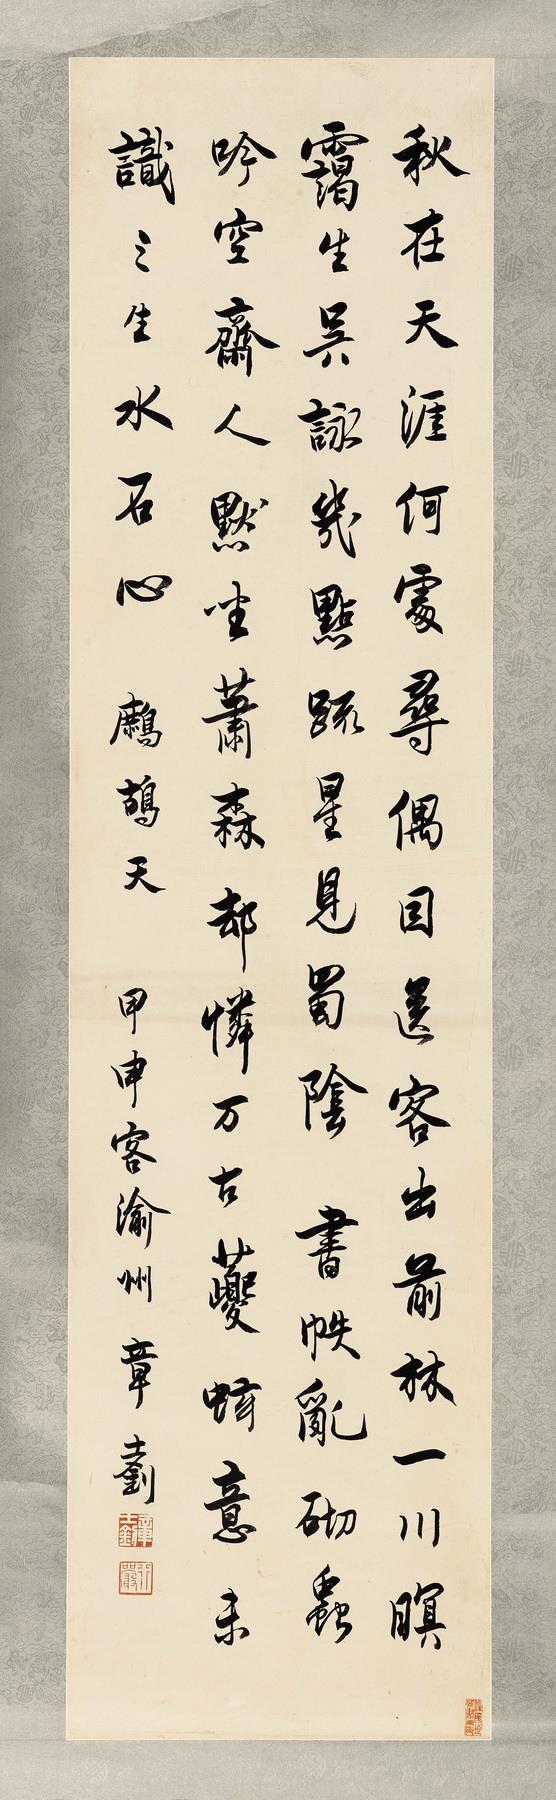 秋在天涯何處尋偶因送客出前林一川暝
靄生吳詠幾點疏星見蜀陰 書帙亂砌蟲
吟空齋人默坐蕭森却憐万古夔蚿意未
識之生水石心 鷓鴣天 甲申客渝州章士釗
章士釗
行嚴